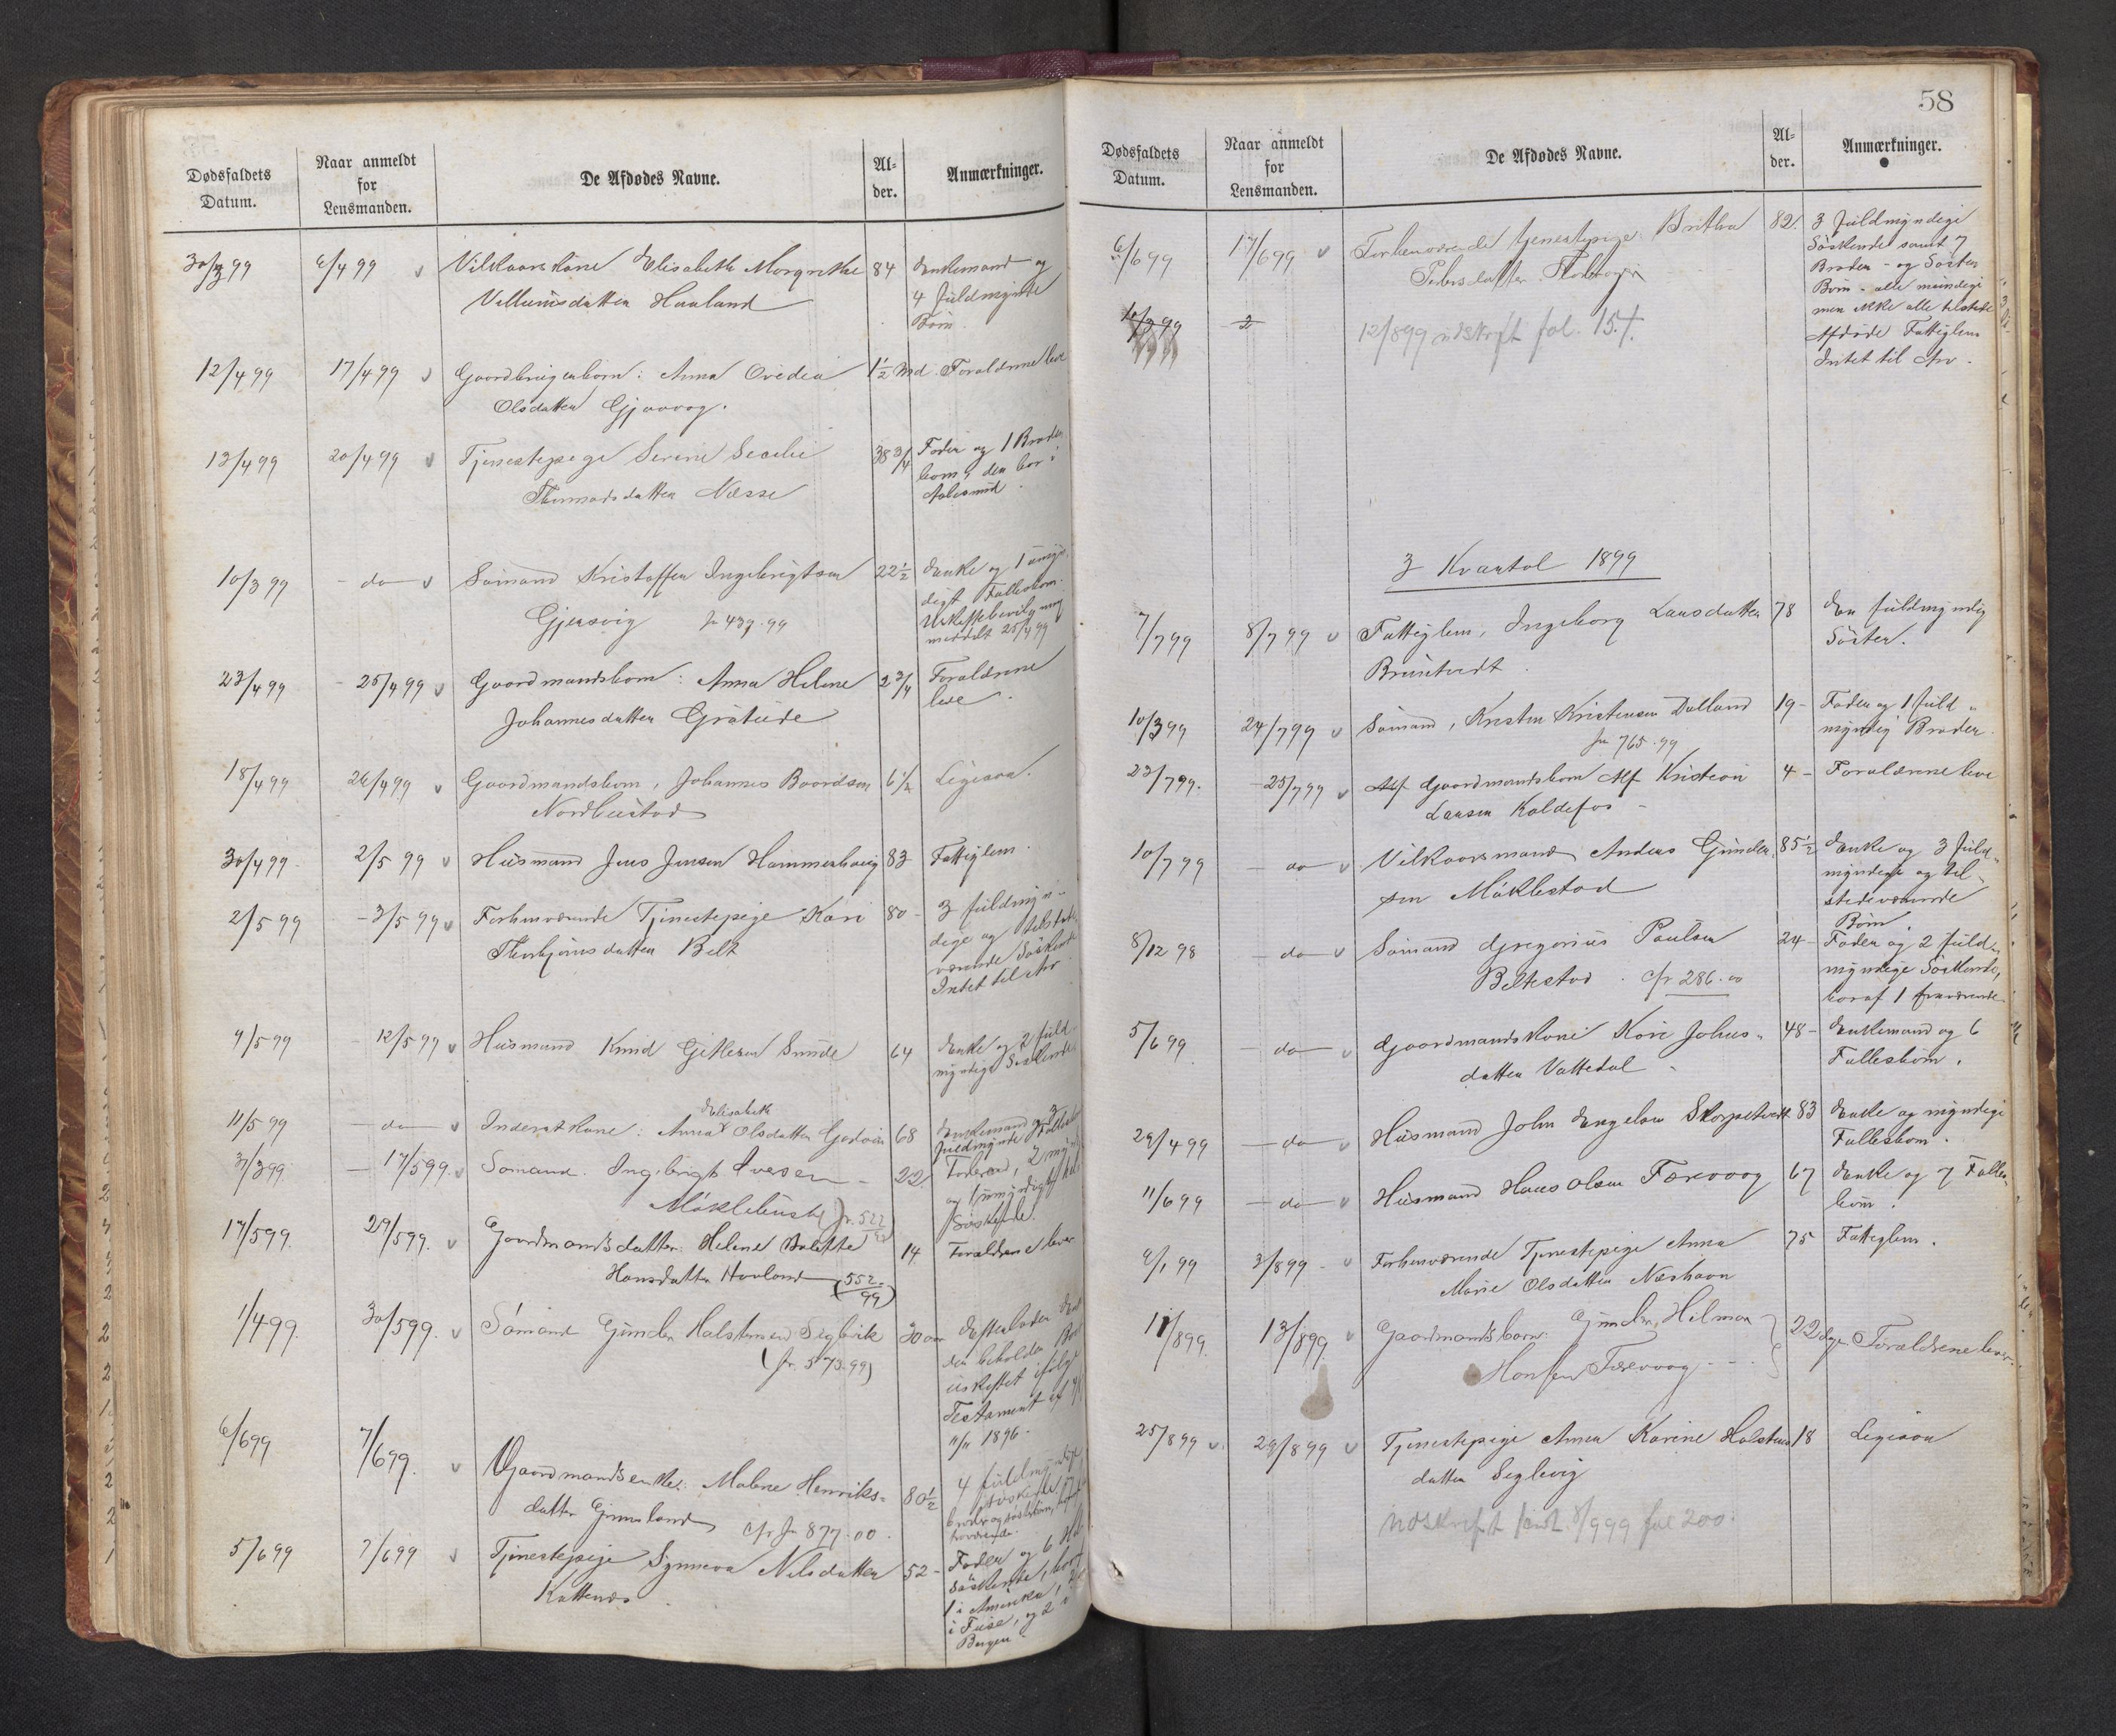 Dødsfaldets
Datum.
Naar anmeldt
for
Lensmanden.
De Afdødes Navne.
Al-
der.
Anmærkninger.
30/3 99 6/4 99 v Vilkaarskone Elisabeth Morgrethe 84 Enkemand og
Villumsdatter Haaland 4 fuldmynde
Børn.
12/4 99 17/4 99 v Gaardbrugerbarn: Anna Ovedia 1½ Md. Forældrene leve
Olsdatter Gjøvaag.
13/4 99 20/4 99 v Tjenestepige Serine Secelie 38 3/4 Fader og 1 Broder
Thormodsdatter Næsse barn, der bor i
Aalesund.
10/3 99 - do - v Sømand Kristoffer Ingebrigtsen 22½ Enke og 1 umyn
digt Fællesbarn.
Gjersvig Jr 439.99 Uskiftebevilgning
meddelt 25/4 99
23/4 99 - 25/4 99 v Gaardmandsbarn: Anna Helene 2 3/4 Forældrene
Johannesdatter leve.
18/4 99 26/4 99 v Gaardmandsbarn, Johannes Baardsen 6½ Ligesaa.
Nordbustad
30/4 99 2/5 99 v Husmand Jens Jensen Hammerhaug 83 Fattiglem.
2/5 99 - 3/5 99 v Forhenværende Tjenestepige Kari 80 - 3 fuldmyn-
Thorbjørnsdatter Belt dige og tilstede
værende Søskende
Intet til Arv.
9/5 99 - 12/5 99 v Husmand Knud Gitlesen Sunde 64 Enke og 2 fuld
myndige Søskende.
11/5 99 - do - v Inderstkone: Anna Elisabeth Olsdatter 68 Enkemand og 3
fuldmynde
31/3 99 - 17/5 99. v Sømand. Ingebrigt Iversen - 22
Møklebust (Jr. 522
Søskende.
17/5 99. 29/5 99. v Gaardmandsdatter: Helene 14 Forældrene lever
Hansdatter Hovland (552/99)
1/4 99. 30/5 99. v Sømand Gunder Halstensen Seglvik 30 aar Efterlader Enke
(Jr. 573.99) der beholder Boet
uskiftet ifølge
Testament af
11/11 1896.
6/6 99 7/6 99. v Gaardmandsenke: Malene Henriks- 80½ 4 fuldmyndige
datter Grimsland cfr Jr 877.00. Søskende
5/6 99 7/6 99 v Tjenestepige Synneva Nilsdatter 52 - Fader og 6 Hel
Kattenes Søskende, hvoraf
1 i Amerika, 2
i Fuse, og 2 i
Bergen -
58
Dødsfaldets
Datum.
Naar anmeldt
for
Lensmanden.
De Afdødes Navne.
Al-
der.
Anmærkninger.
6/6 99 17/6 99 v Forhenværende tjenestepige: Britha 82. 3 fuldmyndige
Pedersdatter Søskende samt 7
Broder- og Søster
Børn - alle myndige
men ikke alle tilstede
Afdøde Fattiglem
Intet til Arv.
12/8 99 udskrift fol. 154.
3 Kvartal 1899
7/7 99 8/7 99 v Fattiglem, Ingeborg Larsdatter 78 En fuldmyndig
Bruntvedt. Søster.
10/3 99 24/7 99 v Sømand, Kristen Kristensen Dalland 19 - Fader og 1 fuld-
Jr 765.99 myndig Broder.
23/7 99. - 25/7 99 v Gaardmandsbarn Alf Kristian 4 - Forældrene leve
Larsen Koldefos -
10/7 99 - do v Vilkaarsmand Anders Gunder- 85½ Enke og 3 fuld-
sen Møklestad myndige og til-
stedeværende
Børn.
8/12 98 - do - v Sømand Gregorius Paulsen 24 - Fader og 2 fuld-
Beltestad. cfr 286.00 myndige Søskende,
hvoraf 1 fraværende.
5/6 99 - do - v Gaardmandskone Kari Johns- 48 - Enkemand og 6
datter Vattedal - Fællesbørn.
29/4 99 - do - v Husmand John Engelsen Skorpetvedt 83 Enke og myndige
Fællesbørn.
11/6 99 - do - v Husmand Hans Olsen Færevaag 67 Enke og 7 Fælles
børn.
6/1 99 3/8 99 - v Forhenværende Tjenestepige Anna 75 Fattiglem.
Marie Olsdatter Neshavn
11/8 99. 13/8 99 v Gaardmandsbarn: Gunder Hilmar 22 dge. Forældrene lever.
Hansen Færevaag - - -
25/8 99 v. 29/8 99 v Tjenestepige Anna Karine Halstens 18 Ligesaa
datter Seglvig
udskrift 8/9 99 fol 200.